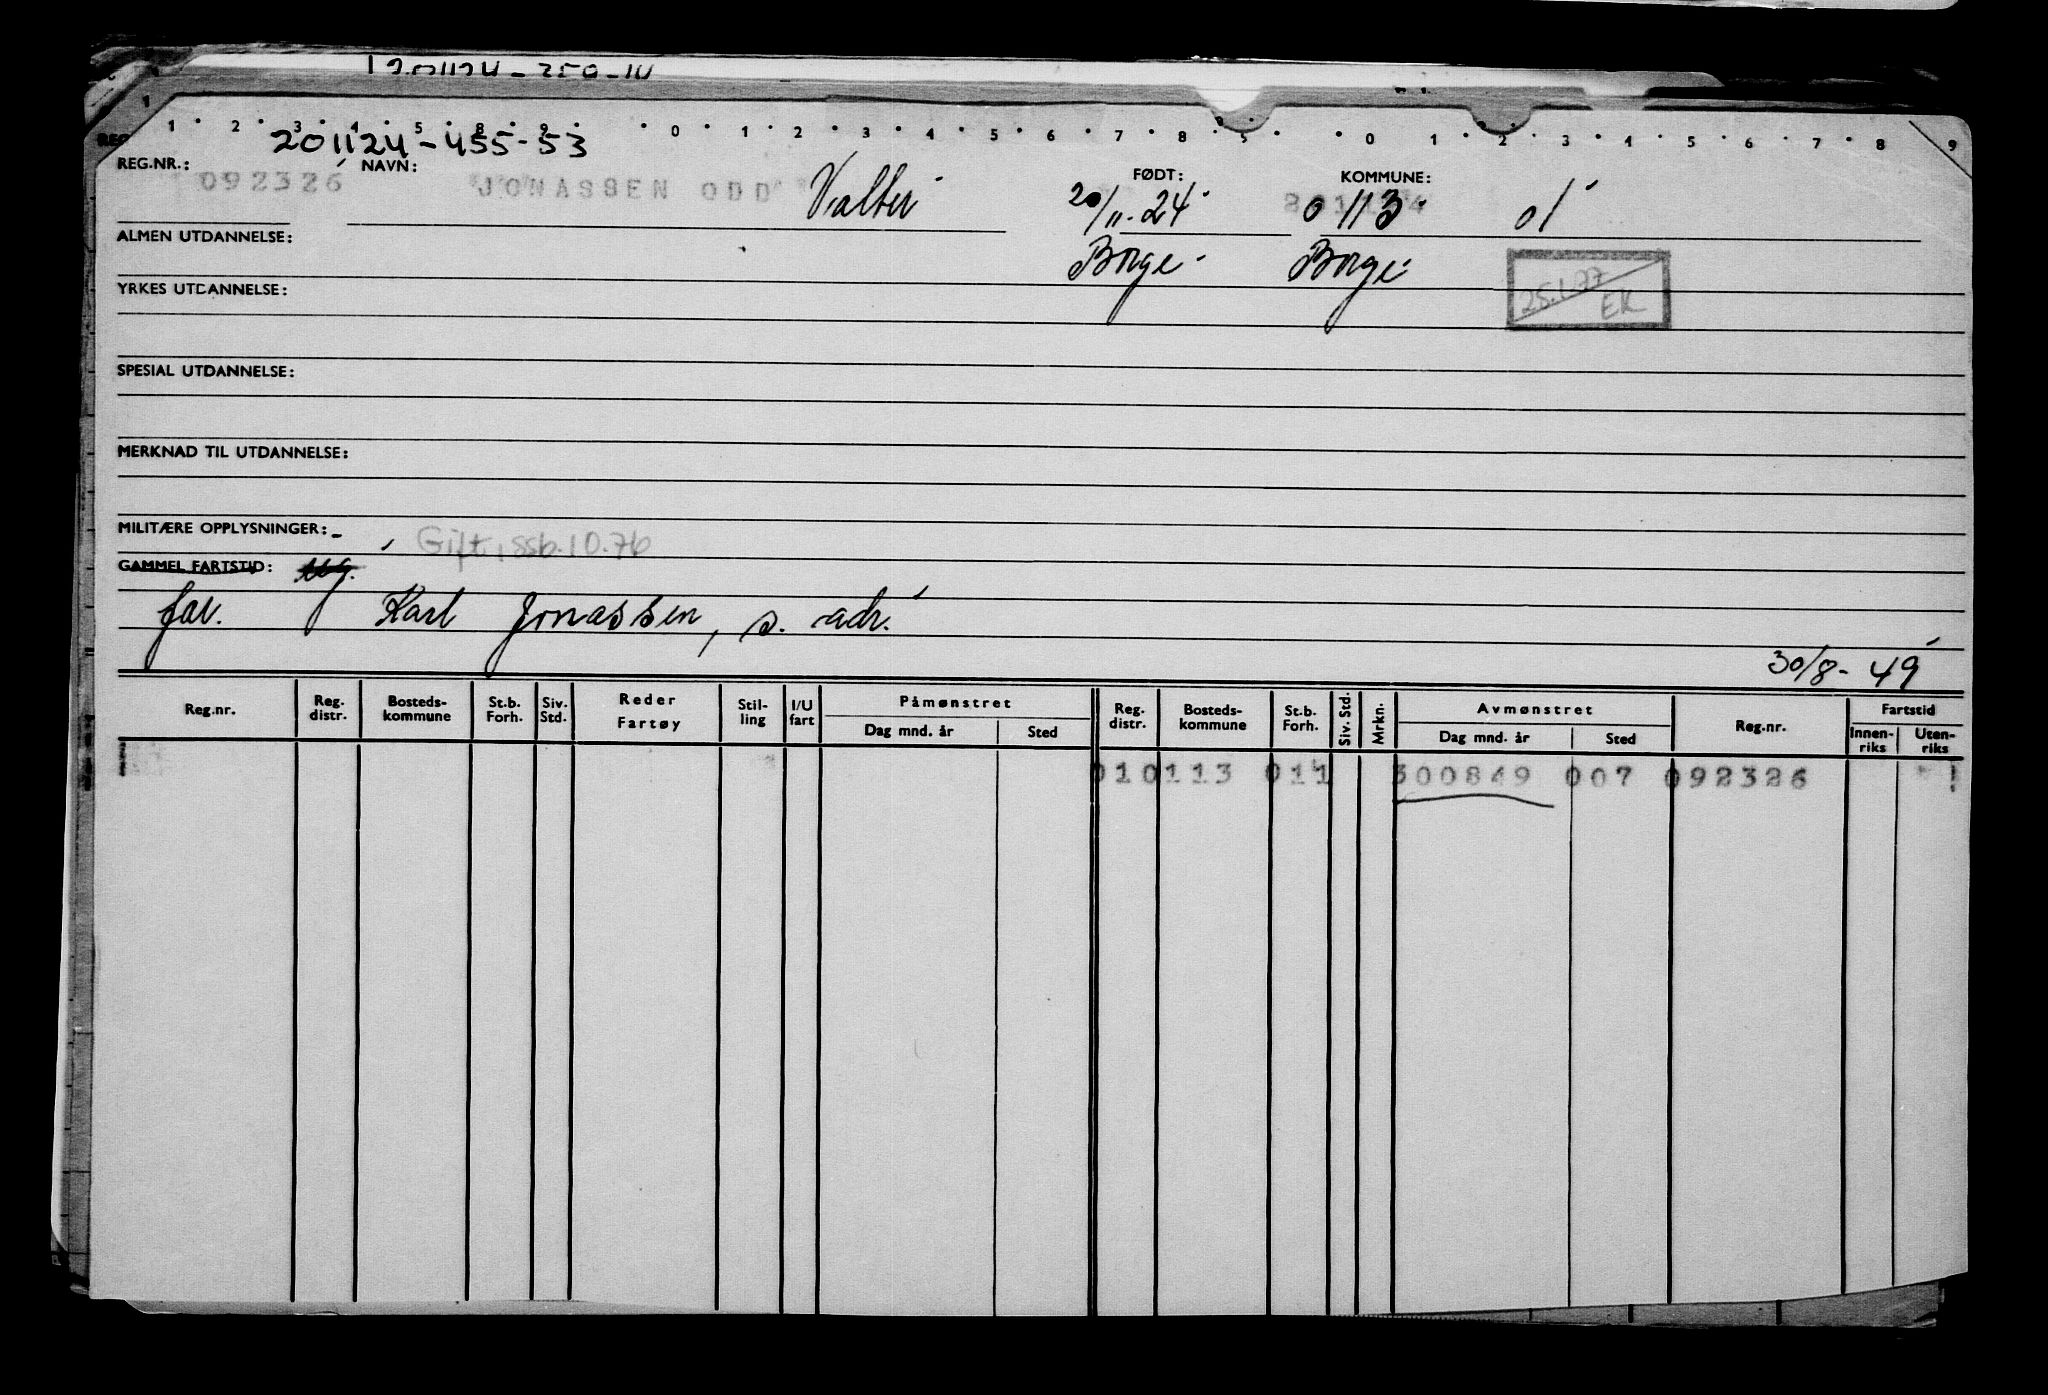 1 2 3 4 5 8 9 0 1 2 3 4 5 6 7 8 9 0 1 2 3 4 5 6 7 8 9
201124-455-53
REG.NR.: 092326 NAVN: JONASSEN ODD Valter FØDT: 20/11-24 KOMMUNE: 0113 01
ALMEN UTDANNELSE: Borge Borge
25.1.77 EK
YRKES UTDANNELSE:
SPESIAL UTDANNELSE:
MERKNAD TIL UTDANNELSE:
MILITÆRE OPPLYSNINGER: - Gift, ssb.10.76
GAMMEL FARTSTID: ug.
far. Karl Jonassen, s. adr.
30/8-49
Reg.nr. Reg. distr. Bosteds-kommune St.b. Forh. Siv. Std. Reder Fartøy Stil-ling I/U fart Påmønstret Dag mnd. år Sted Reg. distr. Bosteds-kommune St.b. Forh. Siv. Std. Mrkn. Avmønstret Dag mnd. år Sted Reg.nr. Fartstid Innen-riks Uten-riks
010113 011 300849 007 092326